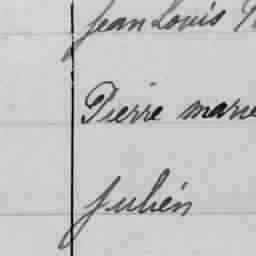 Jean Louis
Pierre marie
Julien